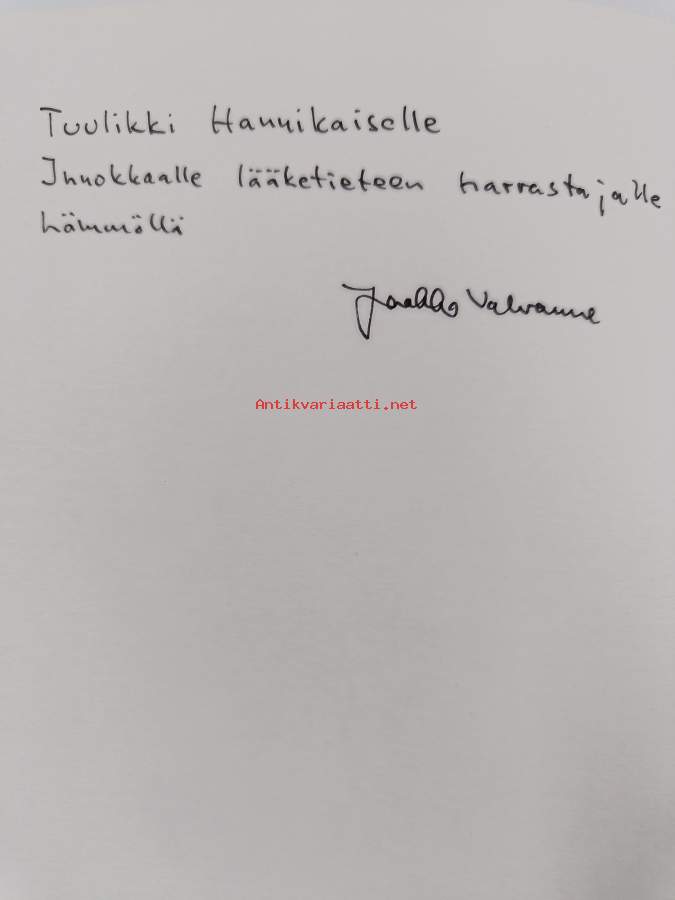 Tuulikki Hannikaiselle
Innokkaalle lääketieteen harrastajalle
hämmöllä
Jaakko Valvanne
Antikvariaatti.net